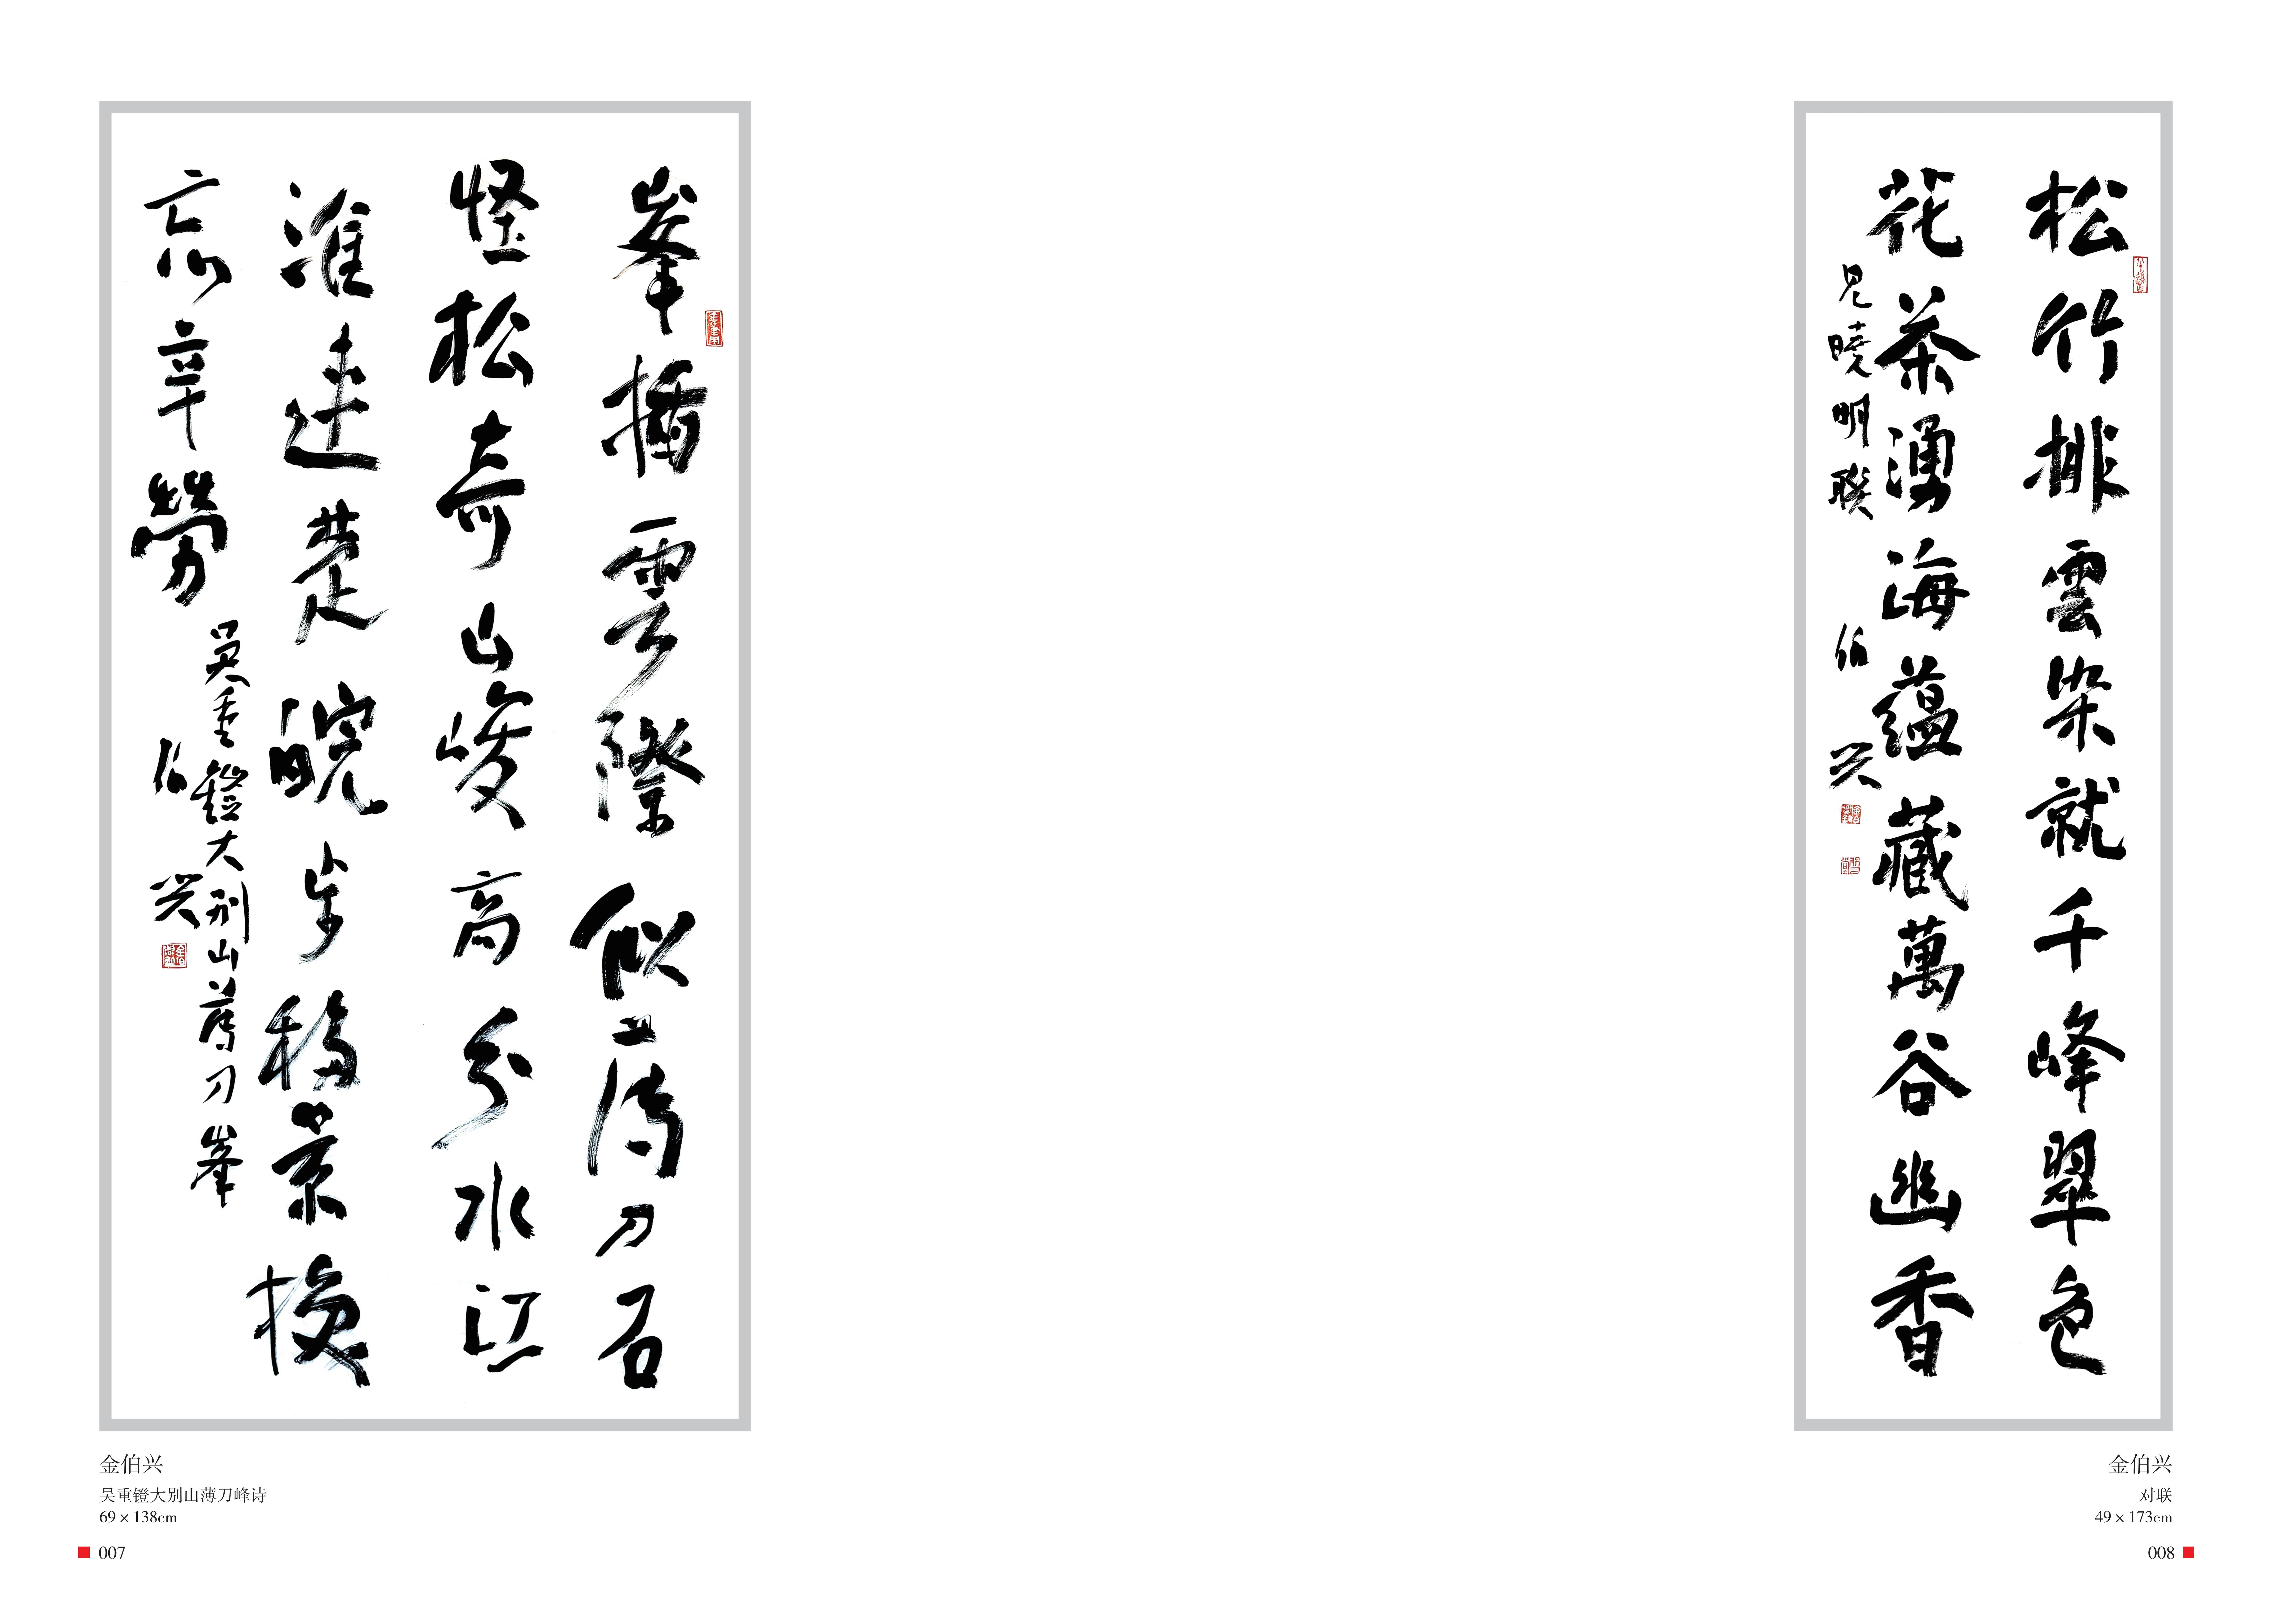 峯插雲際似薄刀石
怪松奇山峻高分水江
淮連楚皖步移景換
忘辛勞
吴重鐙大别山薄刀峯
伯兴
金伯兴
吴重镫大别山薄刀峰诗
69 × 138cm
007
松竹排雲染就千峰翠色
花茶湧海蘊藏萬谷幽香
曉明聯
伯兴
金伯兴
对联
49 × 173cm
008